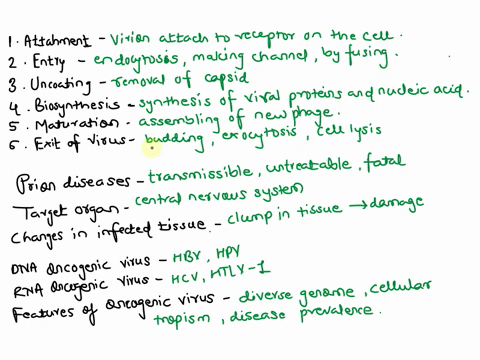 1. Attahment - Virion attach to receptor on the cell.
2. Entry - endocytosis, making channel, by fusing.
3. Uncoating - removal of capsid
4. Biosynthesis - synthesis of viral proteins and nucleic acid.
5. Maturation - assembling of new phage.
6. Exit of virus - budding, exocytosis, cell lysis
Prion diseases - transmissible, untreatable, fatal
Target organ - central nervous system
Changes in infected tissue. - clump in tissue → damage
DNA oncogenic virus - HBV, HPV
RNA oncogenic virus - HCV, HTLV-1
Features of oncogenic virus - diverse genome, cellular
tropism, disease prevalence.